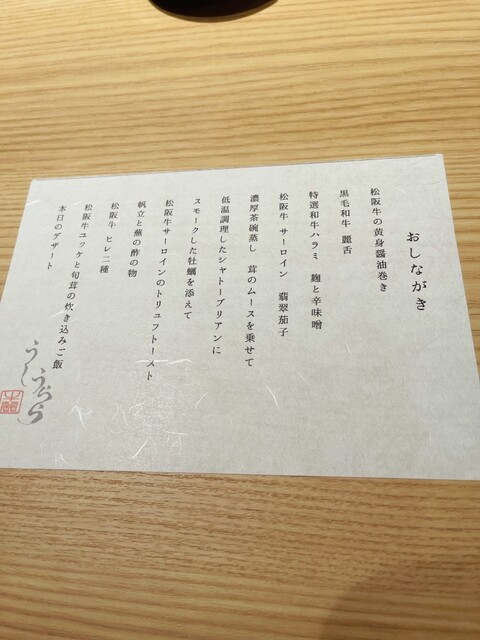 おしながき
松阪牛の黄身醤油巻き
黒毛和牛 麗舌
特選和牛ハラミ 麹と辛味噌
松阪牛 サーロイン 翡翠茄子
濃厚茶碗蒸し 茸のムースを乗せて
低温調理したシャトーブリアンに
スモークした牡蠣を添えて
松阪牛サーロインのトリュフトースト
帆立と蕪の酢の物
松阪牛 ヒレ二種
松阪牛ユッケと旬茸の炊き込みご飯
本日のデザート